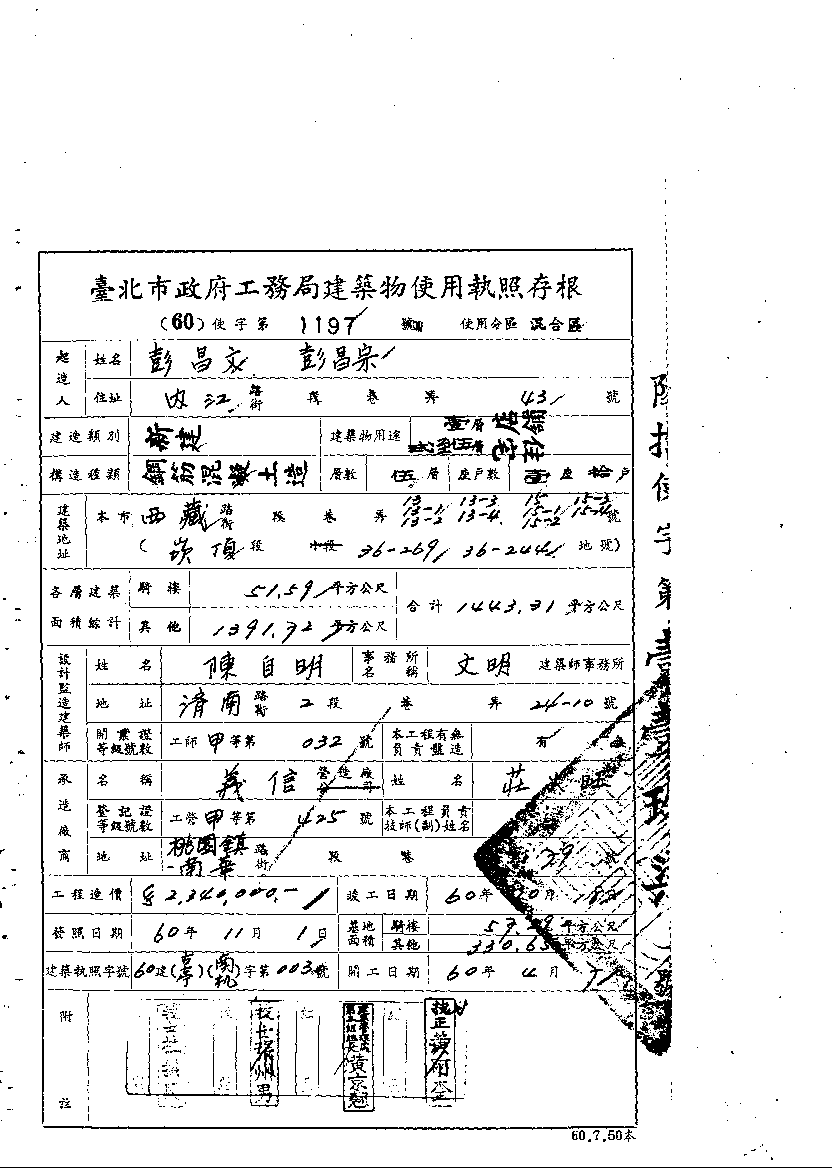 臺北市政府工務局建築物使用執照存根
(60)使字第 1197 號 使用分區 混合區
起造人 姓名 彭昌文 彭昌宗
住址 內江 路街 段 巷 弄 43 號
建造類別 新建 建築物用途 壹層店舖 貳至伍層住宅
構造種類 鋼筋混凝土造 層數 伍層 座戶數 座拾戶
建築地址 本市 西藏 路街 段 巷 弄 13 13-1 13-2 13-3 13-4 15 15-1 15-2 15-3 15-4 號
(崁頂段 小段 36-269 36-244 地號)
各層建築面積綜計 騎樓 51.59 平方公尺 合計 1443.31 平方公尺
其他 1391.72 平方公尺
設計監造建築師 姓名 陳自明 事務所名稱 文明 建築師事務所
地址 濟南 路街 2段 巷 弄 24-10 號
開業證等級號數 工師甲等第 032 號 本工程有無負責監造 有
承造廠商 名稱 義信 營造廠公司 姓名 莊
登記證等級號數 工營甲等第 425 號 本工程負責技師(副)姓名
地址 桃園鎮南華 路街 段 巷 29 號
工程造價 $2,340,000.- 竣工日期 60年
發照日期 60年 11月 1日 基地面積 騎樓 平方公尺
其他 330.65 平方公尺
建築執照字號 60建( )( )字第003號 開工日期 60年 4月
附註
黃京
60.7.50本
使字第